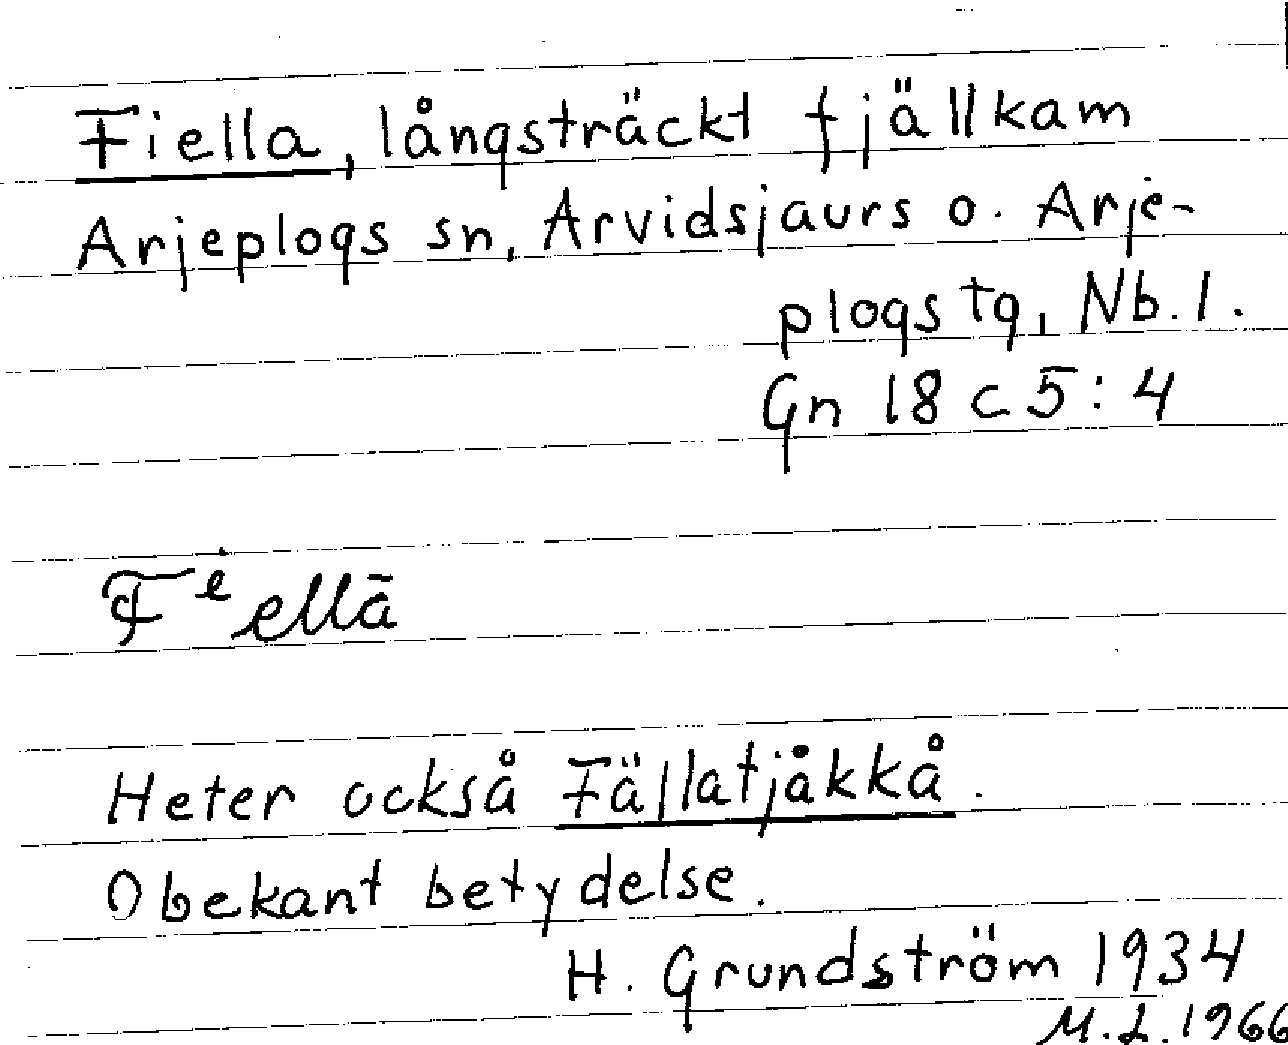 Fiella, långsträckt fjällkam
Arjeplogs sn, Arvidsjaurs o. Arje-
plogs tg, Nb. l.
Gn 18 c 5 : 4
Fᵉellā
Heter också Fällatjåkkå.
Obekant betydelse.
H. Grundström 1934
M.L. 1966